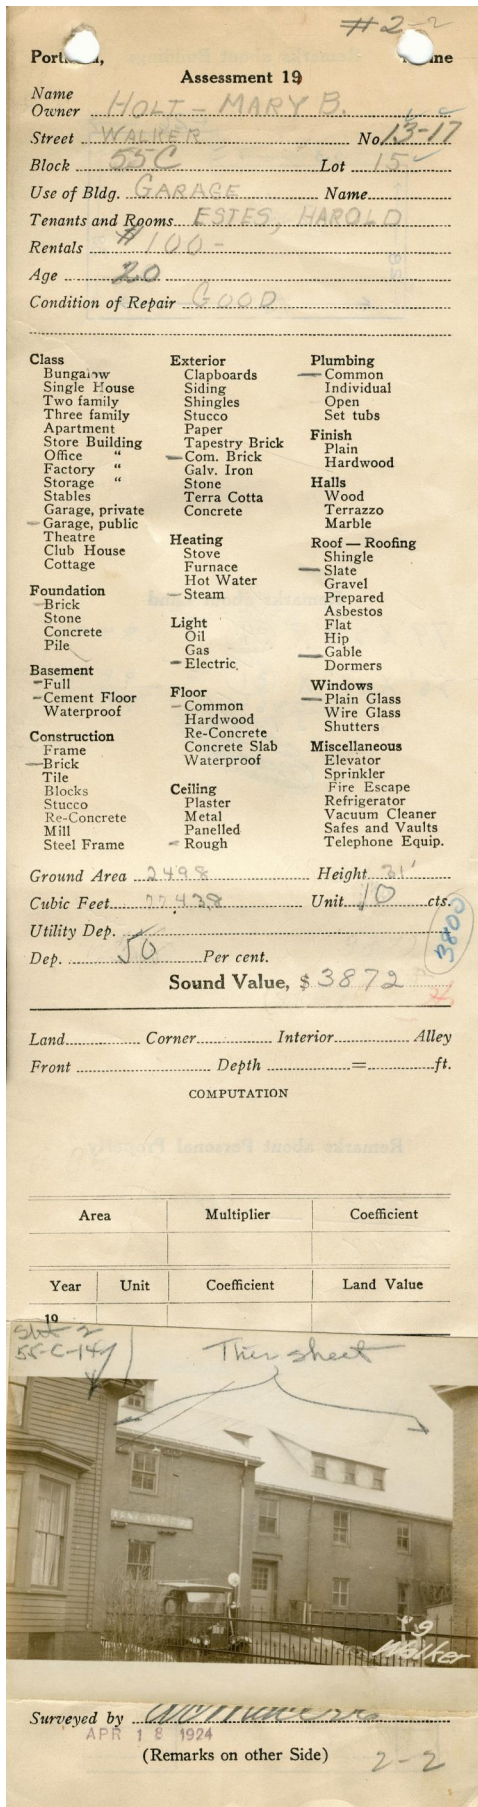 #2-2
Portland, Maine
Assessment 19
Name
Owner HOLT - MARY B.
Street WALKER No. 13-17
Block 55C Lot 15
Use of Bldg. GARAGE Name
Tenants and Rooms ESTES, HAROLD
Rentals $100-
Age 20
Condition of Repair GOOD
Class
Bungalow
Single House
Two family
Three family
Apartment
Store Building
Office "
Factory "
Storage "
Stables
Garage, private
Garage, public
Theatre
Club House
Cottage
Foundation
Brick
Stone
Concrete
Pile
Basement
Full
Cement Floor
Waterproof
Construction
Frame
Brick
Tile
Blocks
Stucco
Re-Concrete
Mill
Steel Frame
Exterior
Clapboards
Siding
Shingles
Stucco
Paper
Tapestry Brick
Com. Brick
Galv. Iron
Stone
Terra Cotta
Concrete
Heating
Stove
Furnace
Hot Water
Steam
Light
Oil
Gas
Electric
Floor
Common
Hardwood
Re-Concrete
Concrete Slab
Waterproof
Ceiling
Plaster
Metal
Panelled
Rough
Plumbing
Common
Individual
Open
Set tubs
Finish
Plain
Hardwood
Halls
Wood
Terrazzo
Marble
Roof — Roofing
Shingle
Slate
Gravel
Prepared
Asbestos
Flat
Hip
Gable
Dormers
Windows
Plain Glass
Wire Glass
Shutters
Miscellaneous
Elevator
Sprinkler
Fire Escape
Refrigerator
Vacuum Cleaner
Safes and Vaults
Telephone Equip.
Ground Area 2498 Height 31'
Cubic Feet 77438 Unit 10 cts.
Utility Dep.
3800
Dep. 50 Per cent.
Sound Value, $ 3872
Land Corner Interior Alley
Front Depth = ft.
COMPUTATION
Area Multiplier Coefficient
Year Unit Coefficient Land Value
19
55-C-14
This sheet
9
Walker
Surveyed by
APR 18 1924
(Remarks on other Side)
2-2